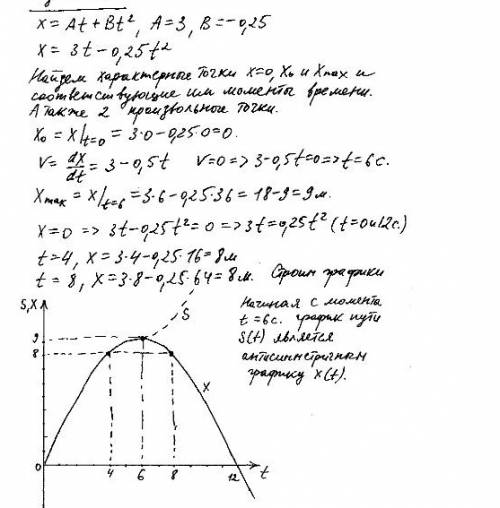 x = At + Bt², A = 3, B = -0,25
x = 3t - 0,25t²
Найдем характерные точки x=0, x₀ и xmax и
соответствующие им моменты времени.
А также 2 произвольные точки.
x₀ = x/t=0 = 3·0 - 0,25·0 = 0.
V = dx/dt = 3 - 0,5t V=0 => 3-0,5t=0 => t=6c.
Xmax = x/t=6 = 3·6 - 0,25·36 = 18 - 9 = 9м.
x=0 => 3t - 0,25t² = 0 => 3t = 0,25t² (t=0 и 12с.)
t=4, x = 3·4 - 0,25·16 = 8м
t = 8, x = 3·8 - 0,25·64 = 8м. Строим графики
Начиная с момента
t = 6c. график пути
S(t) является
антисимметричным
графику x(t).
S,X
S
9
8
X
0
4
6
8
12
t